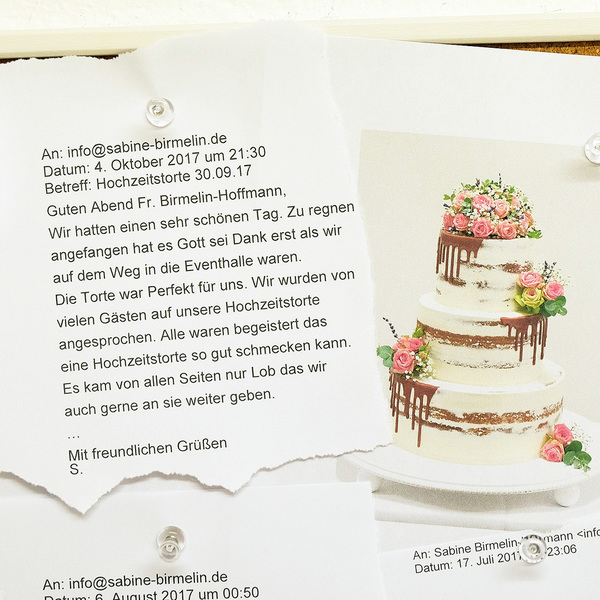 An: info@sabine-birmelin.de
Datum: 4. Oktober 2017 um 21:30
Betreff: Hochzeitstorte 30.09.17
Guten Abend Fr. Birmelin-Hoffmann,
Wir hatten einen sehr schönen Tag. Zu regnen
angefangen hat es Gott sei Dank erst als wir
auf dem Weg in die Eventhalle waren.
Die Torte war Perfekt für uns. Wir wurden von
vielen Gästen auf unsere Hochzeitstorte
angesprochen. Alle waren begeistert das
eine Hochzeitstorte so gut schmecken kann.
Es kam von allen Seiten nur Lob das wir
auch gerne an sie weiter geben.
...
Mit freundlichen Grüßen
S.
An: Sabine <info
Datum: 17. Juli 23:06
An: info@sabine-birmelin.de
Datum: 6. August 2017 um 00:50